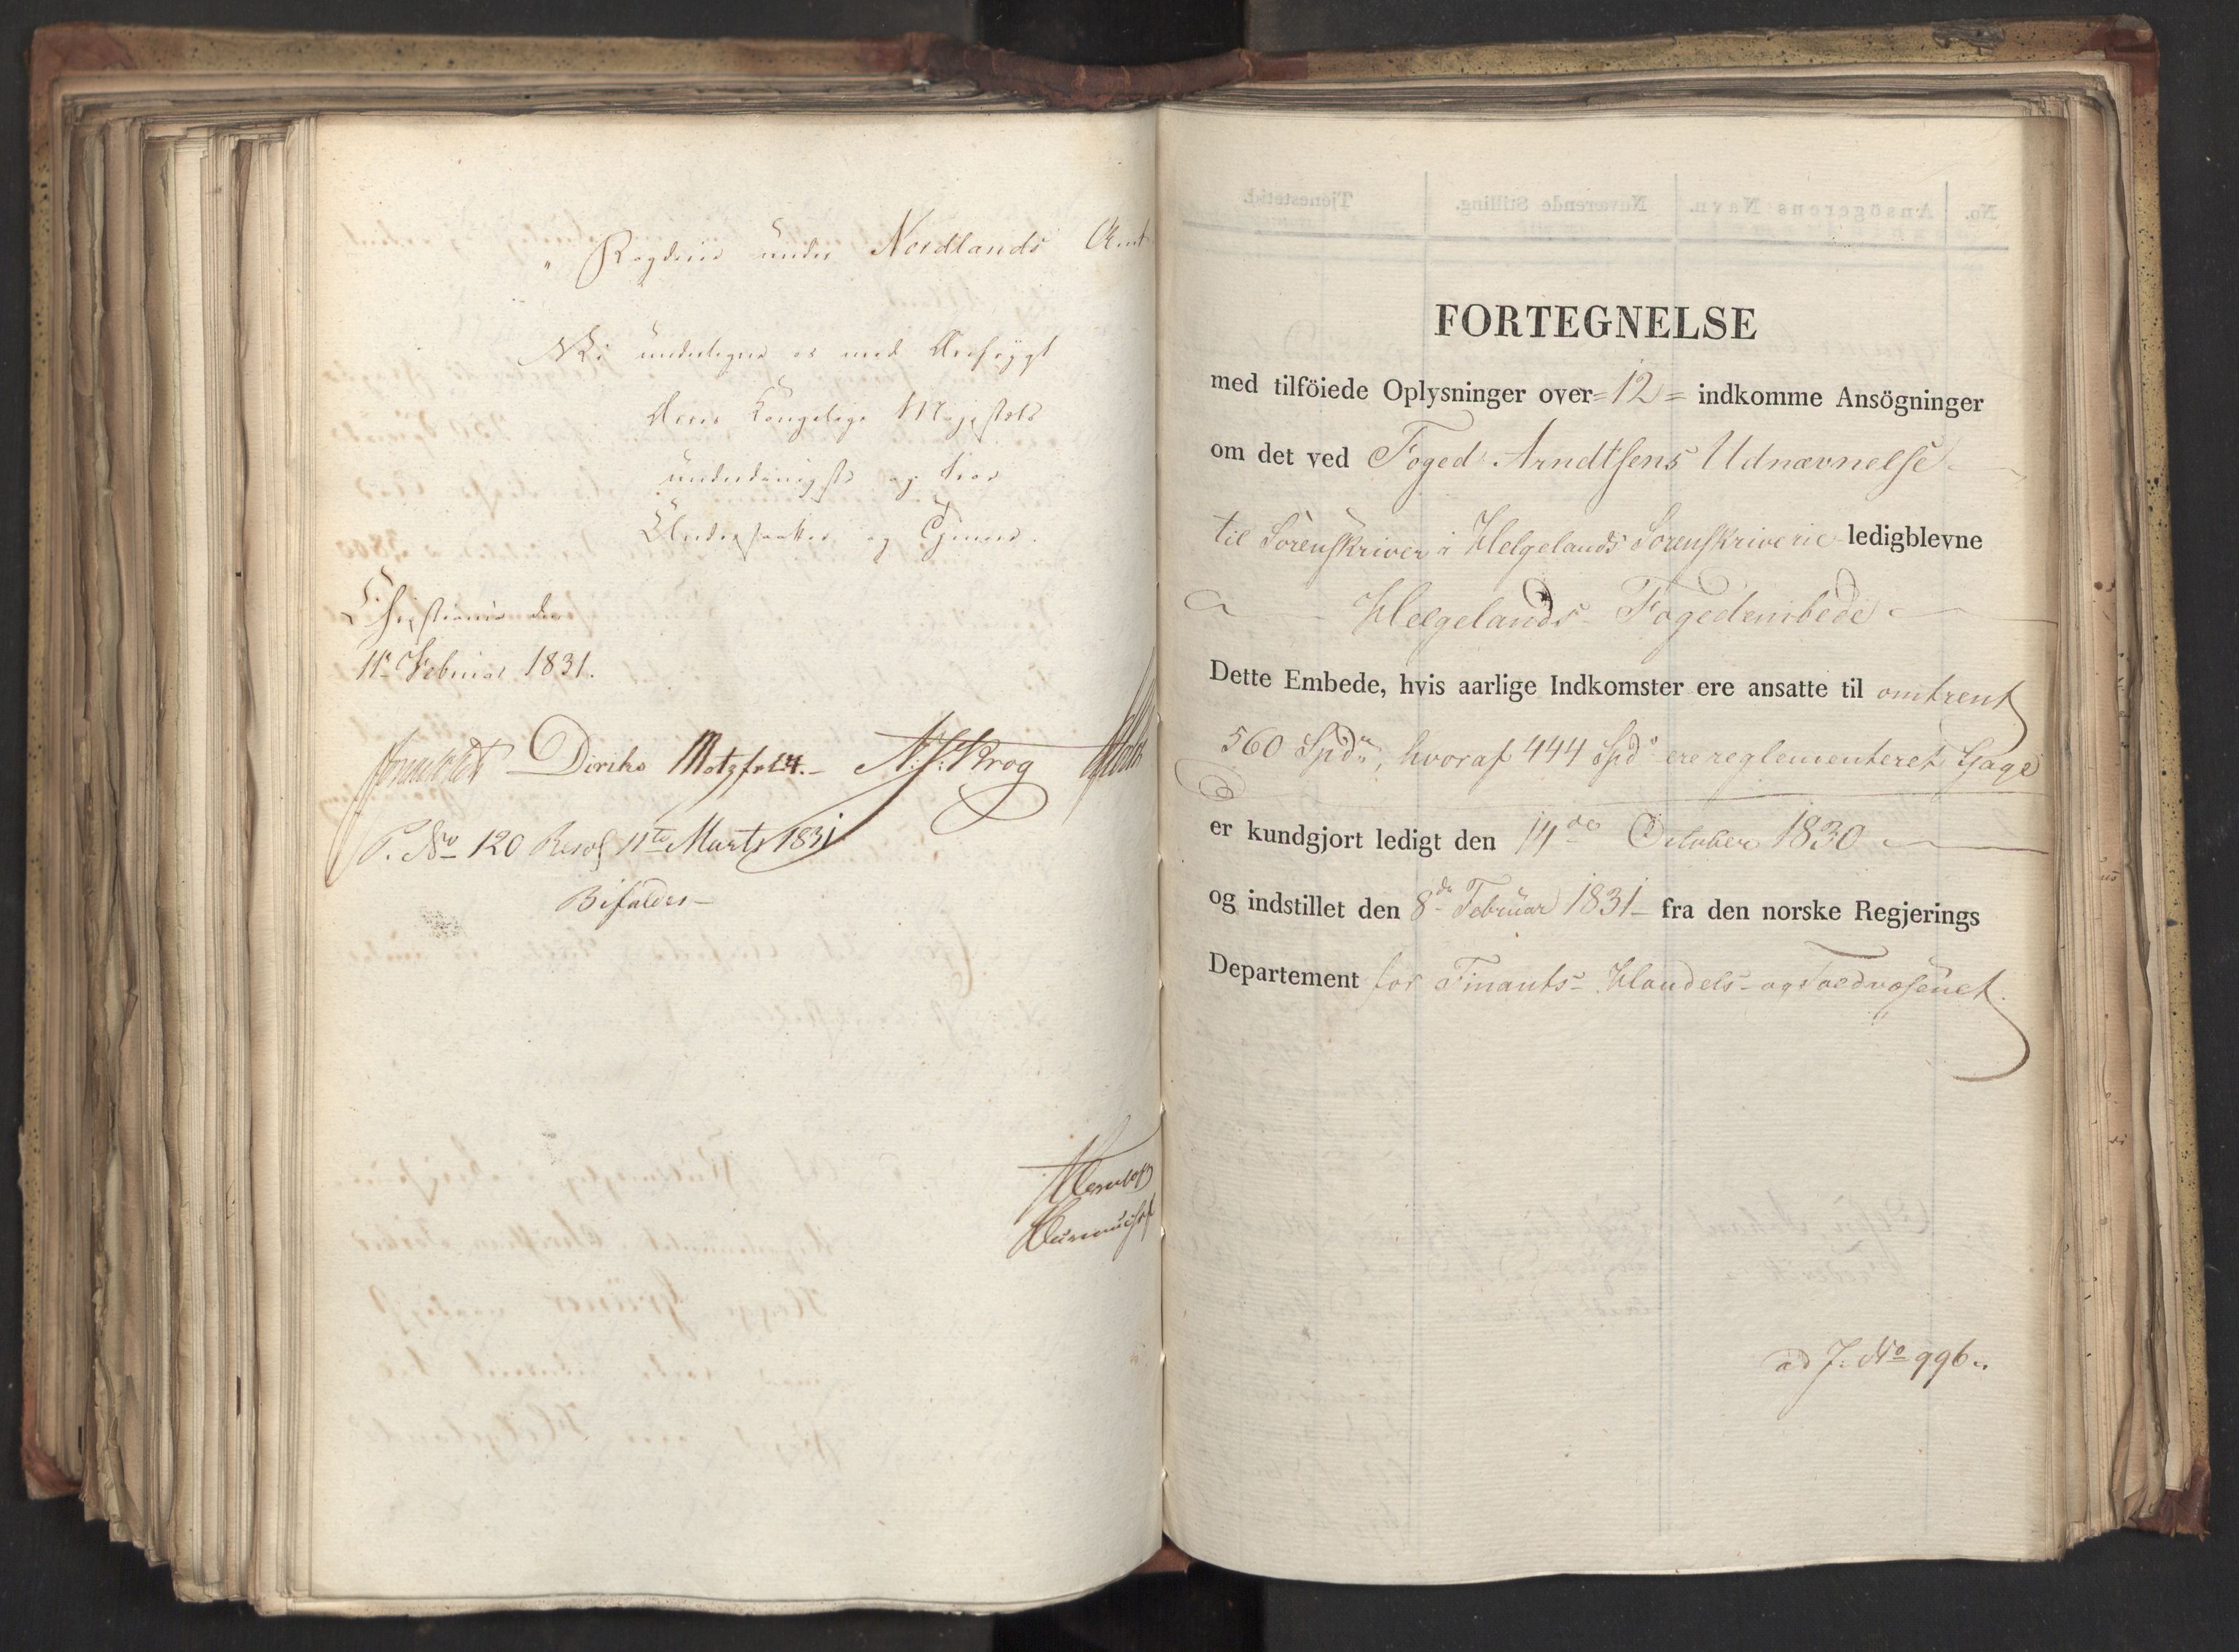 " Fogderie under Nordlands Amt
Vi undertegne os med Ærefrygt
Deres Kongelige Majestæts
underdanigste og troe
Undersaatter og Tjenere.
Christiania den
11te Februar 1831.
Diriks Motzfeldt. N. J. Krog
P. No 120 Resol 11te Marts 1831
Bifaldes
FORTEGNELSE
med tilföiede Oplysninger over = 12 = indkomme Ansögninger
om det ved Foged Arndtsens Udnævnelse
til Sörenskriver i Helgelands Sorenskriverie ledigblevne
Helgelands Fogedembede
Dette Embede, hvis aarlige Indkomster ere ansatte til omtrent
560 Spdr, hvoraf 444 Spdr ere reglementeret Gage
er kundgjort ledigt den 14de October 1830
og indstillet den 8de Februar 1831 fra den norske Regjerings
Departement for Finants- Handels- og Toldvæsenet.
ad J. No 996.